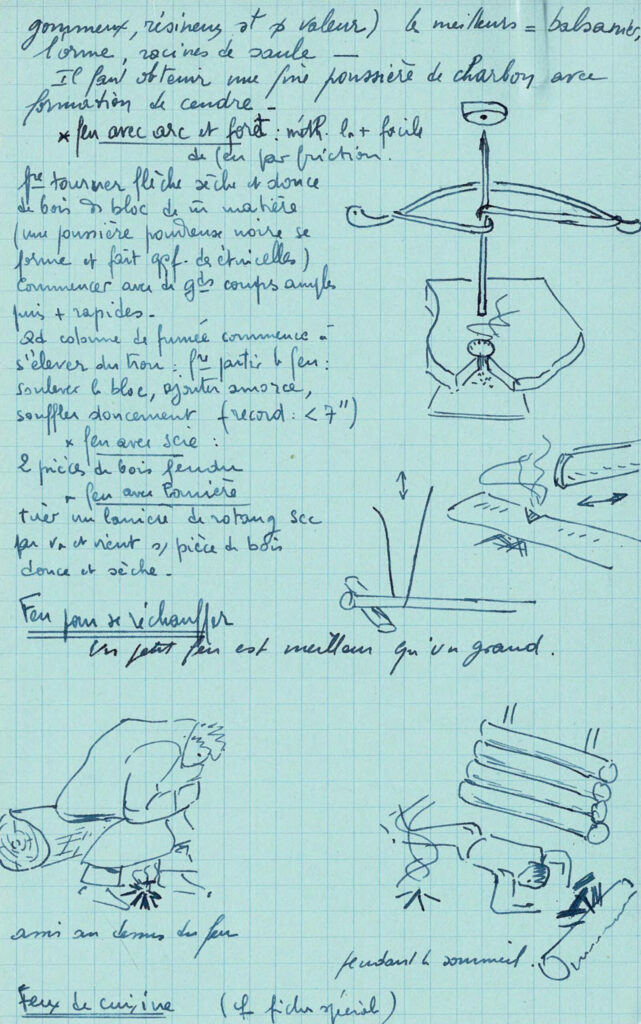 gommeux, résineux st ø valeur) le meilleurs = balsamier,
l'orme, racines de saule —
Il faut obtenir une fine poussière de charbon avec
formation de cendre -
* feu avec arc et forêt : méth. la + facile
de feu par friction.
fre tourner flèche sèche et douce
de bois ds bloc de m̄ matière
(une poussière poudreuse noire se
forme et fait qqf. des étincelles)
Commencer avec de gds coups amples
puis + rapides -
Qd colonne de fumée commence à
s'élever du trou : fre partir le feu :
soulever le bloc, ajouter amorce,
souffler doucement (record : < 7")
* feu avec scie :
2 pièces de bois fendu
* feu avec lanière
tirer un lanière de rotang sec
par va et vient s/ pièce de bois
douce et sèche -
Feu pour se réchauffer
Un petit feu est meilleur qu'un grand.
assis au dessus du feu
pendant le sommeil.
Feux de cuisine (cf fiches spéciales)